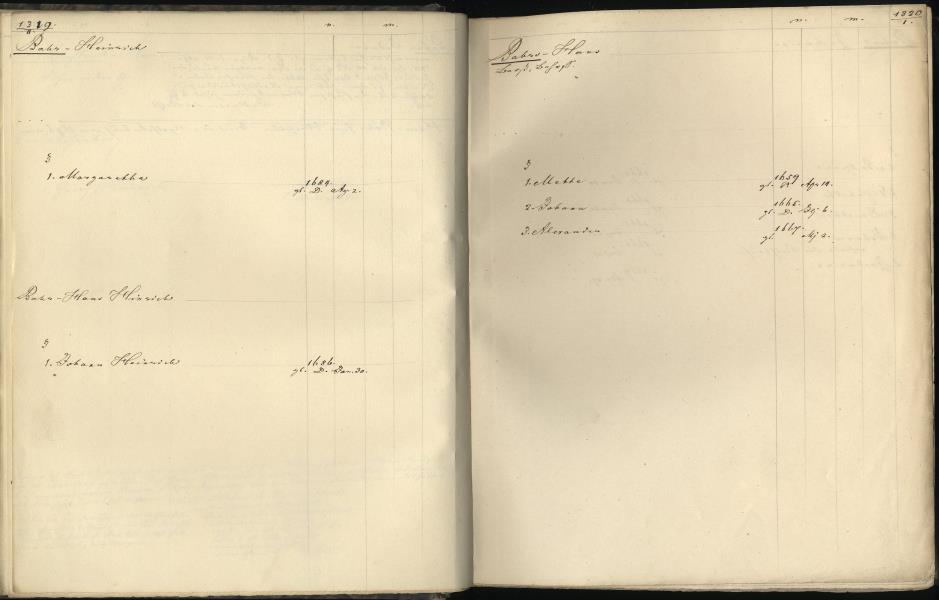 1319.
n. m.
Bahr - Heinrich
1. Margaretha
1684.
gl. D. Ag. 2.
Bahr - Hans Hinrich
1. Johann Heinrich
1686.
gl. D. Jan. 30.
1320
1.
n. m.
Bahrs - Hans
1. Metta
1659
gl. Apr. 19.
2. Johann
1665.
gl. D. 6.
3. Alexander
1667.
gl. 2.